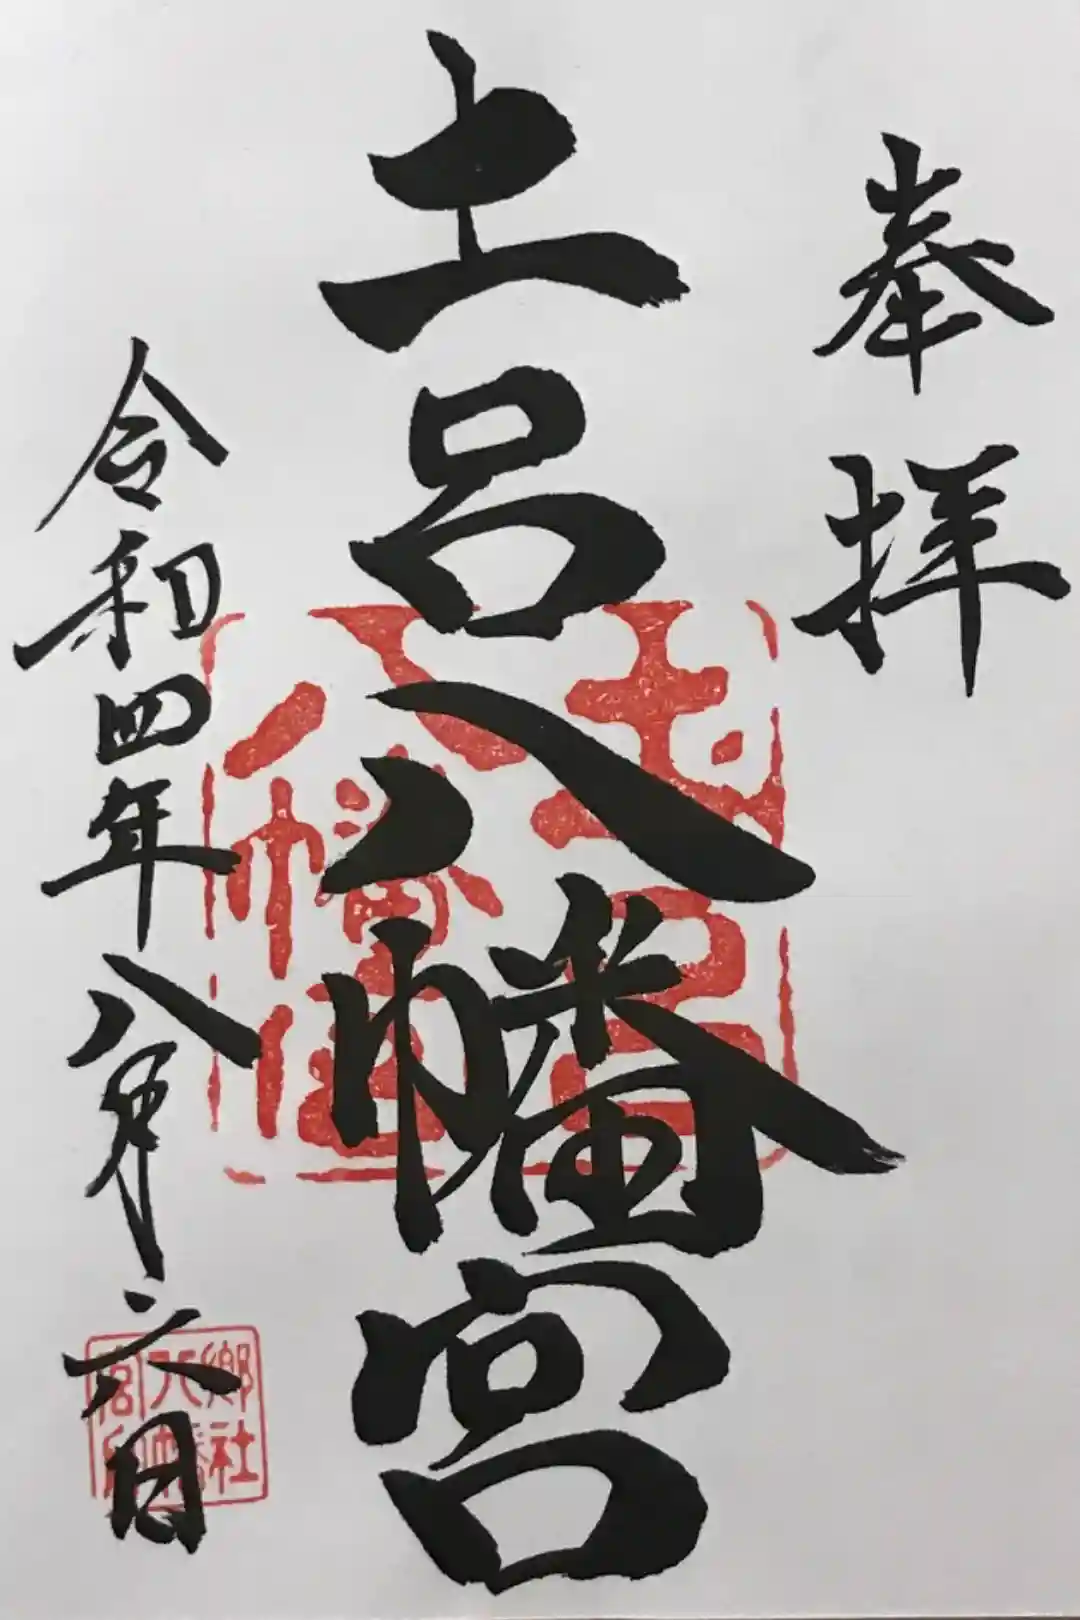 奉拝
土呂八幡宮
令和四年八月六日
土呂
八幡宮
郷社
八幡
宮印